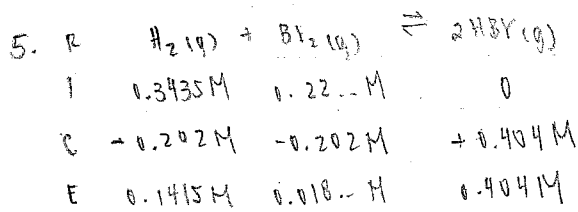 5. R H₂(g) + Br₂(g) ⇌ 2HBr(g)
I 0.3435M 0.22.. M 0
C -0.202M -0.202M +0.404M
E 0.1415M 0.018.. M 0.404M